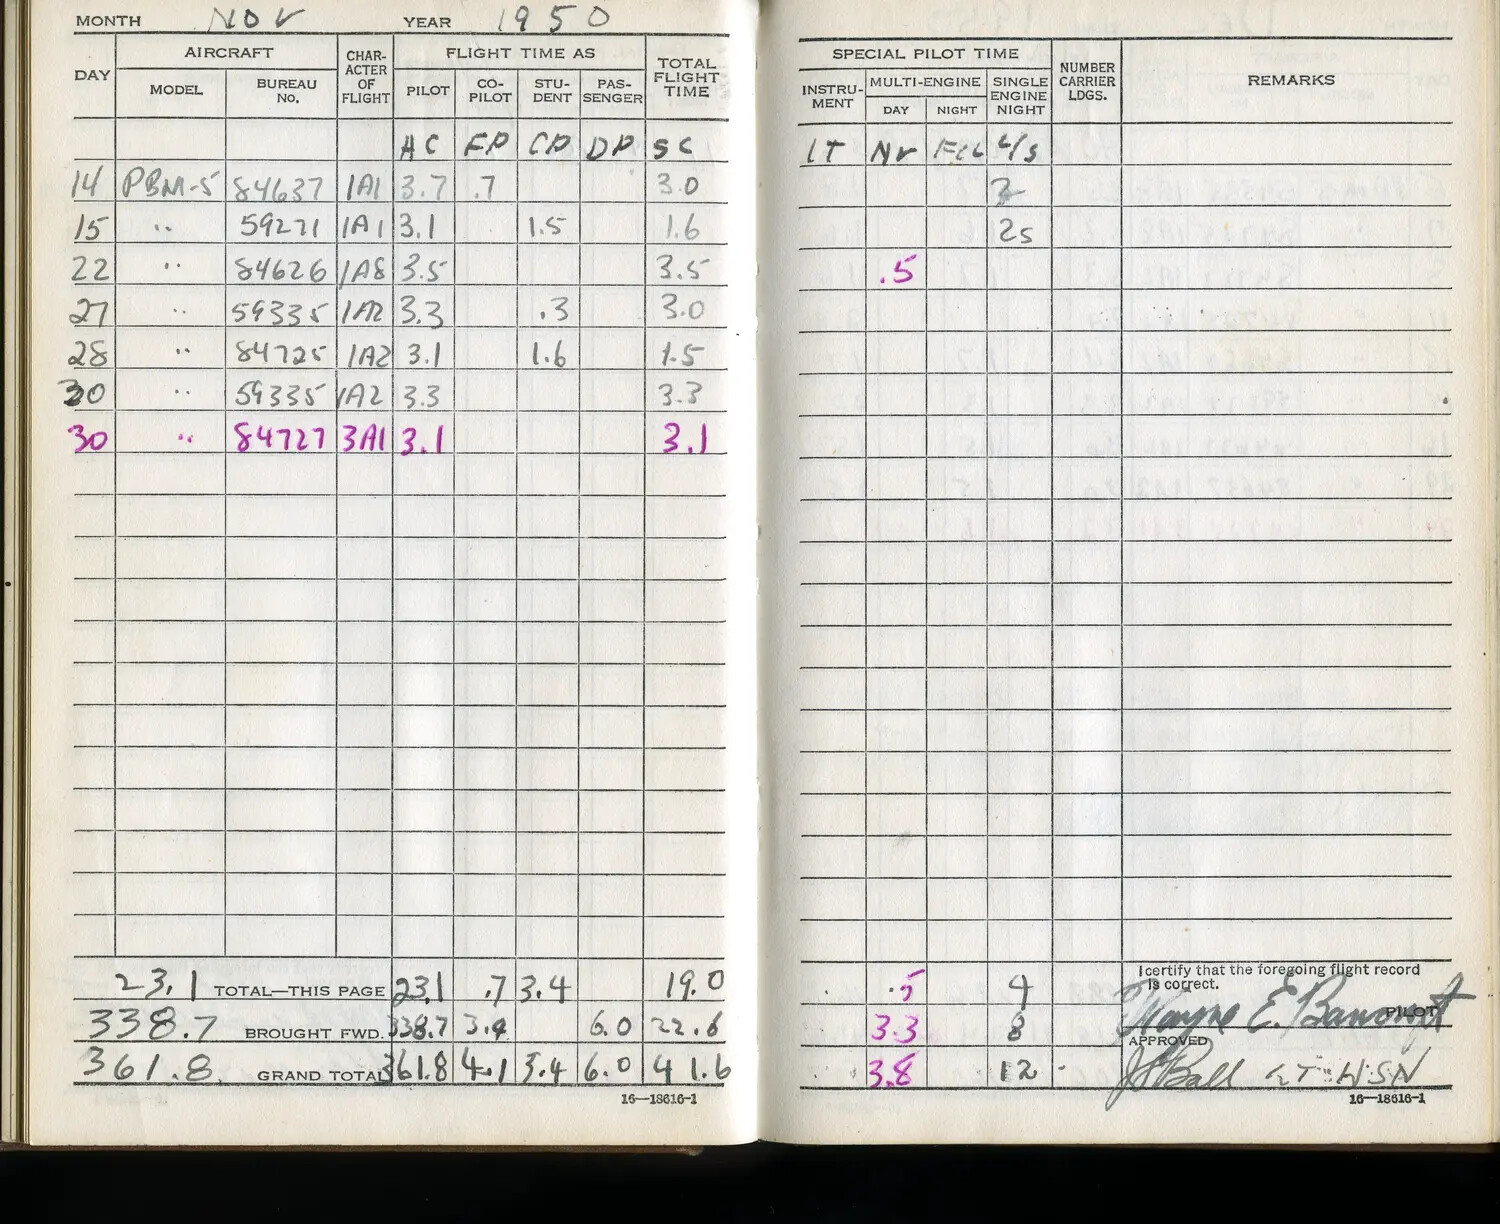 MONTH NOV YEAR 1950
DAY AIRCRAFT CHAR-ACTER OF FLIGHT FLIGHT TIME AS TOTAL FLIGHT TIME
MODEL BUREAU No. PILOT CO-PILOT STU-DENT PAS-SENGER
AC FP CP DP SC
14 PBM-5 84637 1A1 3.7 .7 3.0
15 " 59271 1A1 3.1 1.5 1.6
22 " 84626 1A8 3.5 3.5
27 " 59335 1A2 3.3 .3 3.0
28 " 84725 1A2 3.1 1.6 1.5
30 " 59335 1A2 3.3 3.3
30 " 84727 3A1 3.1 3.1
23.1 TOTAL—THIS PAGE 23.1 .7 3.4 19.0
338.7 BROUGHT FWD. 338.7 3.4 6.0 22.6
361.8 GRAND TOTAL 361.8 4.1 3.4 6.0 41.6
16—18616-1
SPECIAL PILOT TIME NUMBER CARRIER LDGS. REMARKS
INSTRU-MENT MULTI-ENGINE SINGLE ENGINE NIGHT
DAY NIGHT
IT Nr L/S
2
2s
.5
I certify that the foregoing flight record is correct.
.5 4
Wayne E. Bancroft PILOT
3.3 8
APPROVED
3.8 12 Ball LT USN
16—18616-1